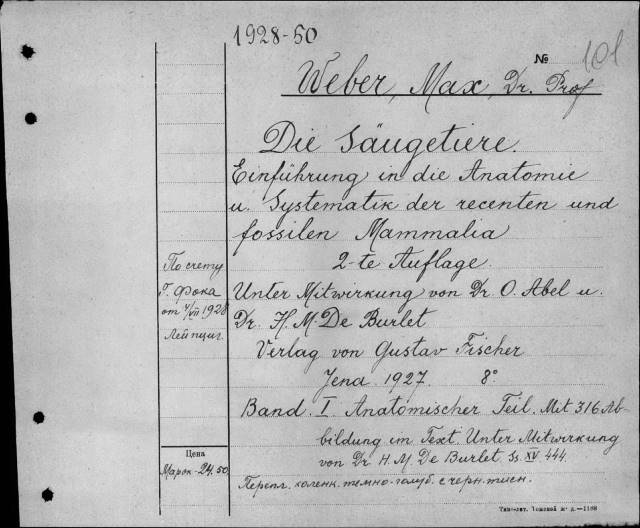 1928-50
№ 101
Weber, Max, Dr. Prof
Die Säugetiere.
Einführung in die Anatomie
u. Systematik der recenten und
fossilen Mammalia
2-te Auflage.
По счету
Г. Фока
от 4/VII 1928
Лейпциг.
Unter Mitwirkung von Dr. O. Abel u.
Dr. H. M. De Burlet
Verlag von Gustav Fischer
Jena 1927. 8°
Band. I. Anatomischer Teil. Mit 316 Ab-
bildung im Text. Unter Mitwirkung
von Dr. H. M. De Burlet Ss. XV 444.
Цена
Марок-24.50
Перепл. коленк. темно-голуб. с черн. тисн.
Типо-лит. Томской ж. д.—1188